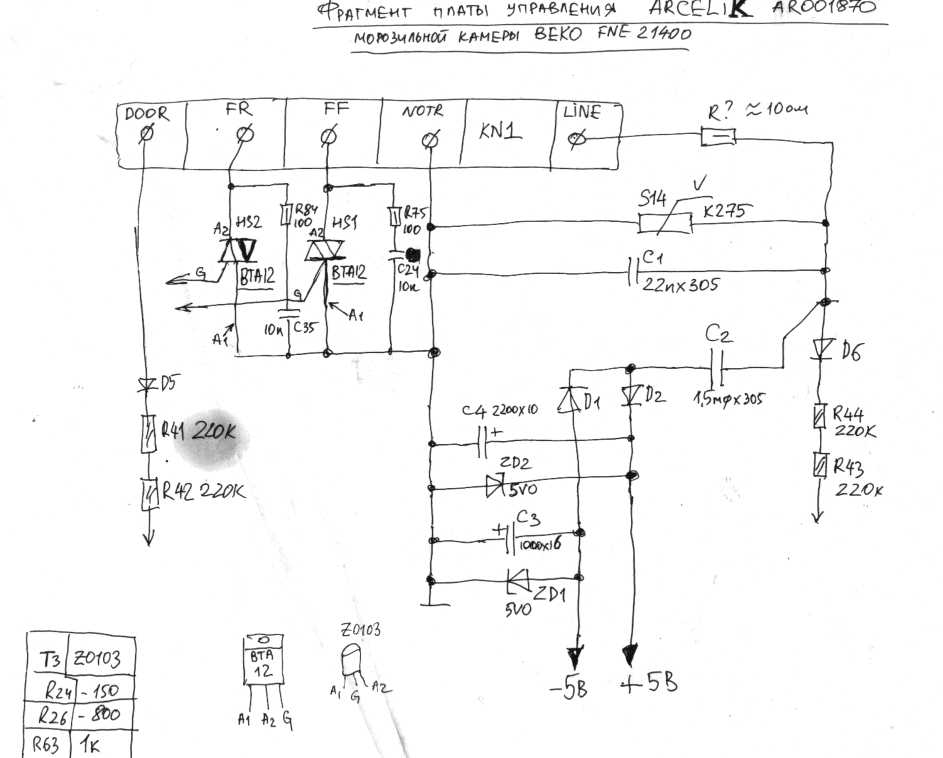 ФРАГМЕНТ ПЛАТЫ УПРАВЛЕНИЯ ARCELIK AR001870
МОРОЗИЛЬНОЙ КАМЕРЫ BEKO FNE 21400
DOOR FR FF NOTR KN1 LINE
R? ≈10ом
S14 V K275
C1
22n×305
A2 HS2
R84
100
A2 HS1
R75
100
G BTA12
G BTA12
C24
10n
A1 10n C35 A1
C2
1,5мф×305
D6
D5
R41 220K
R42 220K
D1 D2
C4 2200×10
+
R44
220K
ZD2
5V0
R43
220K
+ C3
1000×16
ZD1
5V0
-5В +5В
T3 Z0103
R24 -150
R26 -800
R63 1K
BTA
12
A1 A2 G
Z0103
A1 G A2